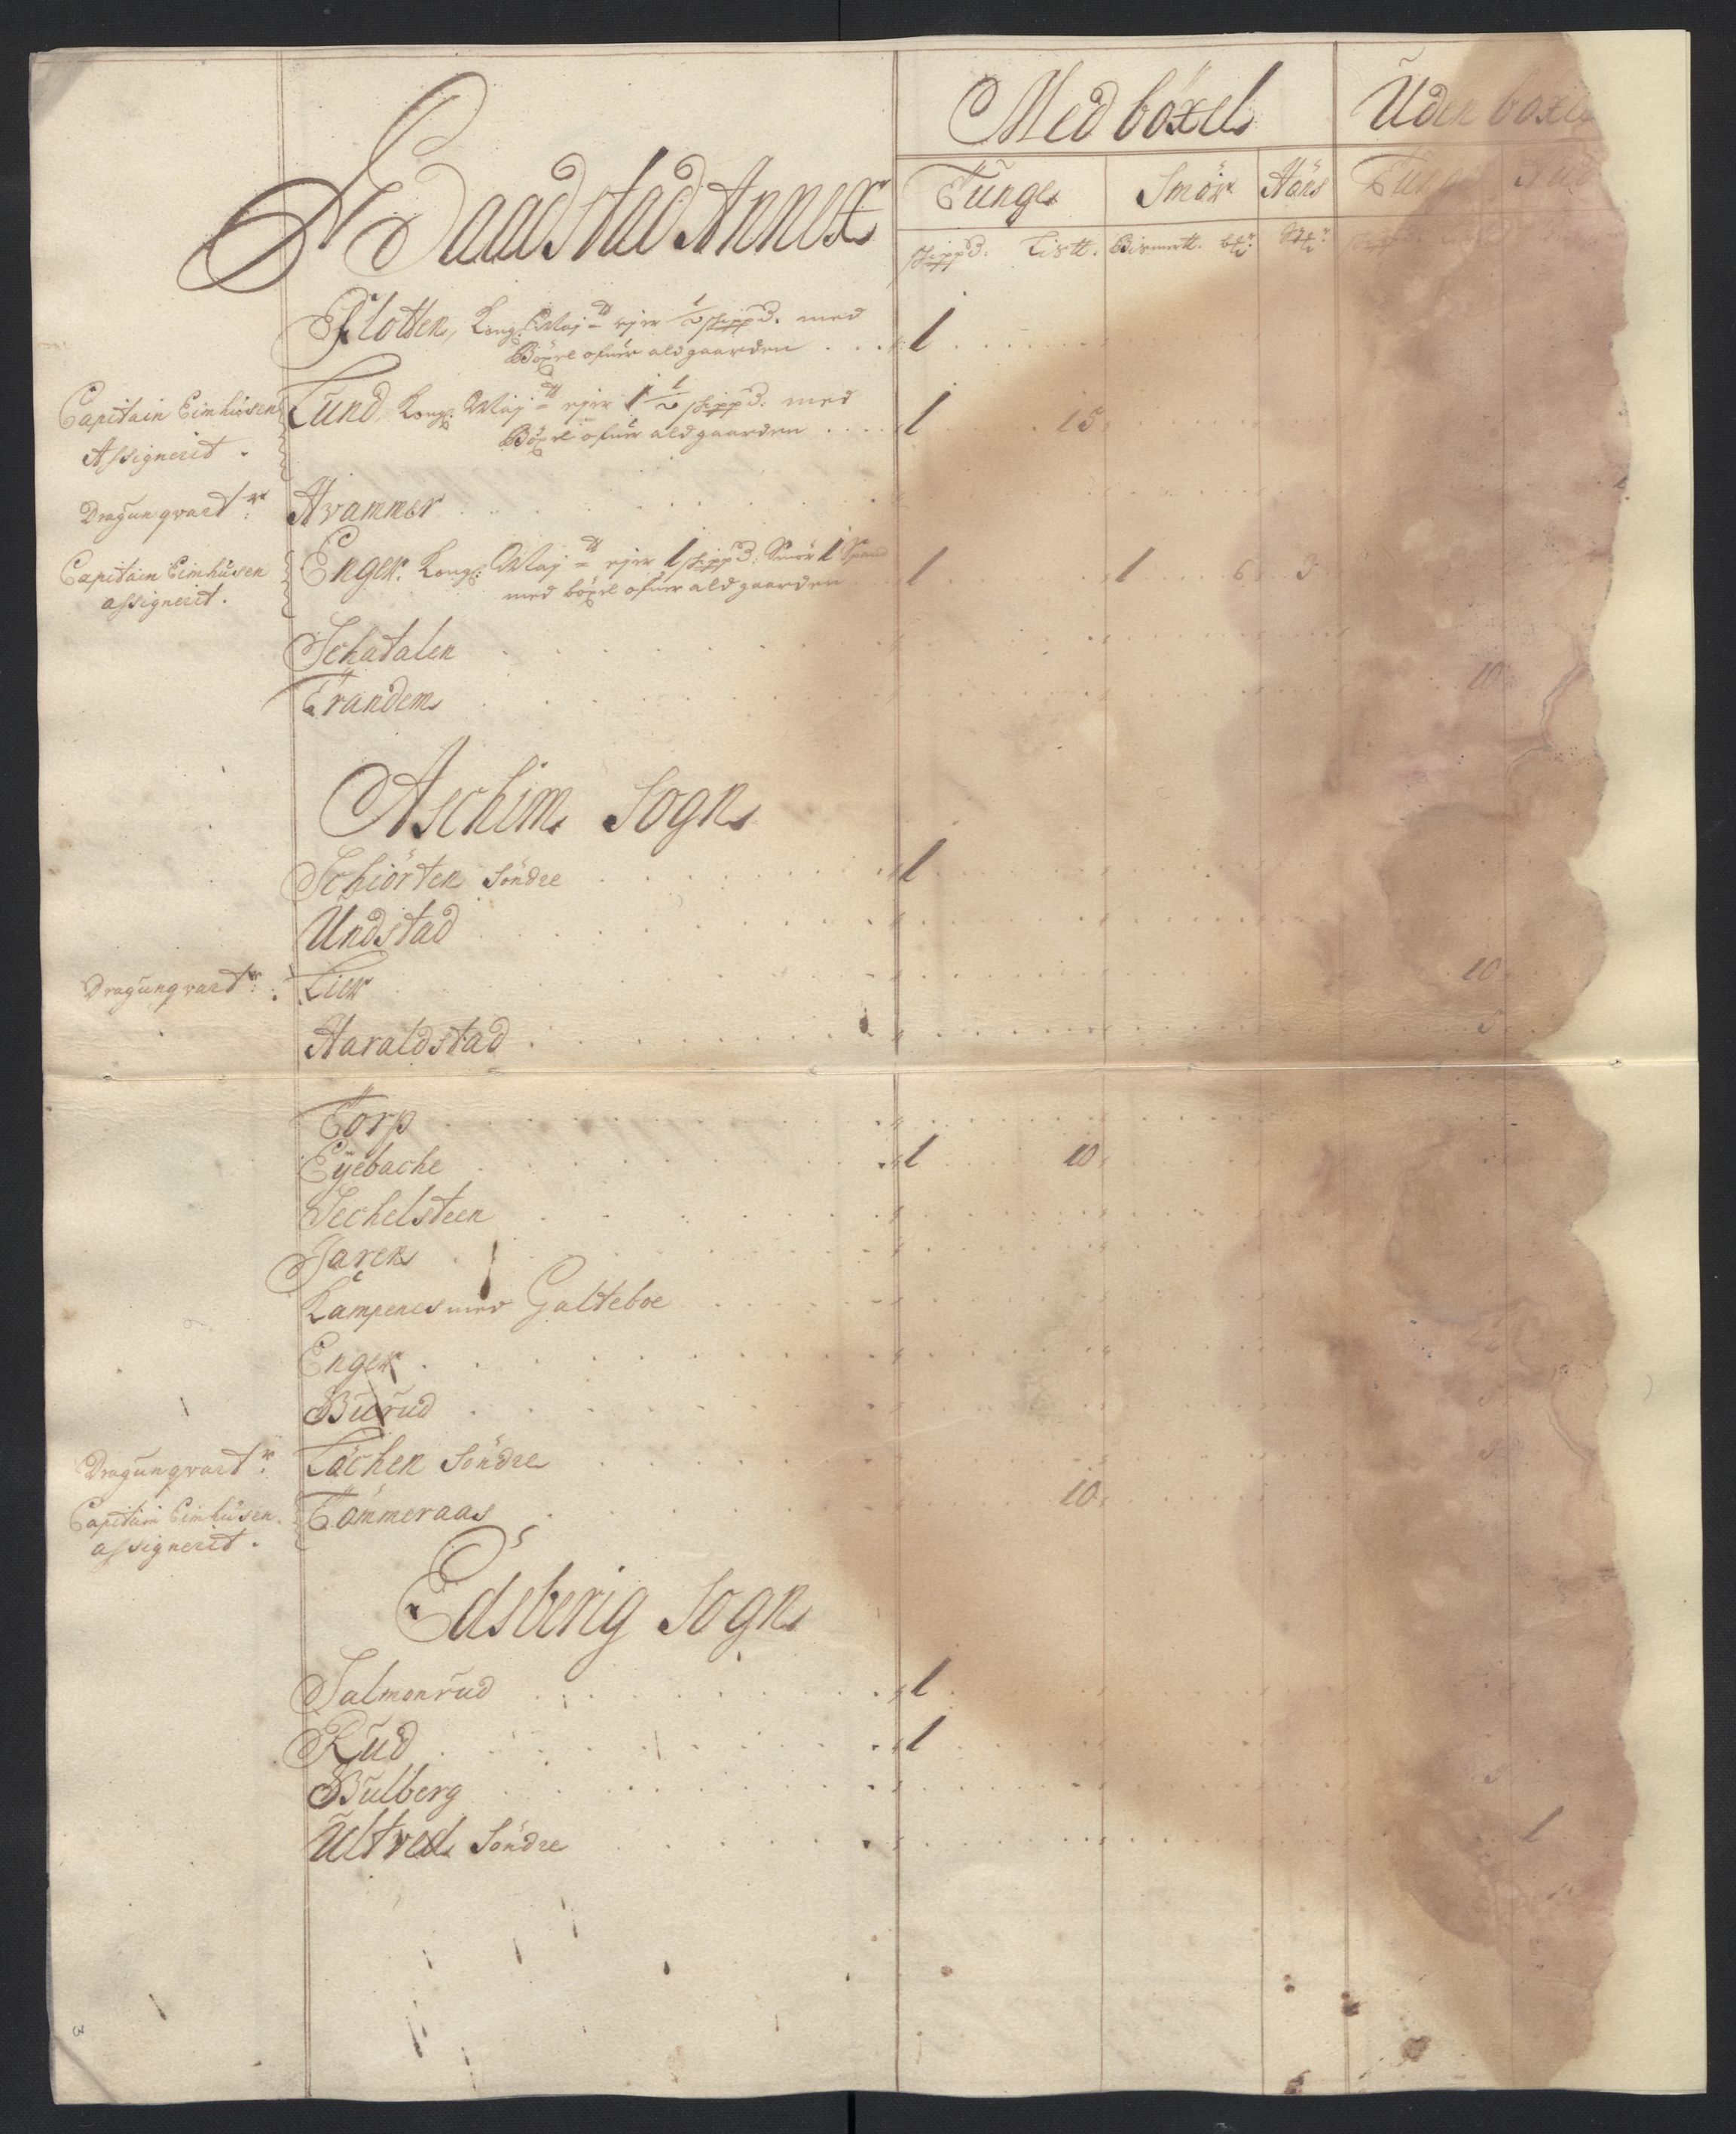 Med böxel
Uden böxel
Baadstad Annex
Tunge
Smör
Haus
Tunge
schippd. Listt. Bismertt.
Flotten, Kong. Maj tt ejer 1/2 schippd. med
Böxel ofuer ald gaarden 1
Capitain Eimhüsen
Assignerit.
Lund, Kong. Maj tt ejer 1 1/2 schippd. med
Böxel ofuer ald gaarden 1 15
Dragunqvartr: Hvammer
Capitain Eimhüsen
assignerit.
Enger. Kong: Maj tt ejer 1 schippd. Smör 1 Spand
med böxel ofuer ald gaarden 1 1 6 3
Schatalen
Trandem 10
Aschim Sogn
Schiörten Söndre 1
Undstad
Dragunqvartr: Lier 10
Haraldstad 5
Torp
Eyebache 1 10
Sechelsteen
Jaren
Kampenes med Galteboe
Enger
Burud
Dragunqvartr: Lächen Söndre
Capitain Eimhüsen
assignerit.
Tömmeraas 10
Edsberig Sogn
Salmonrud 1
Rud 1
Bulberg 5
Ultved Söndre 1